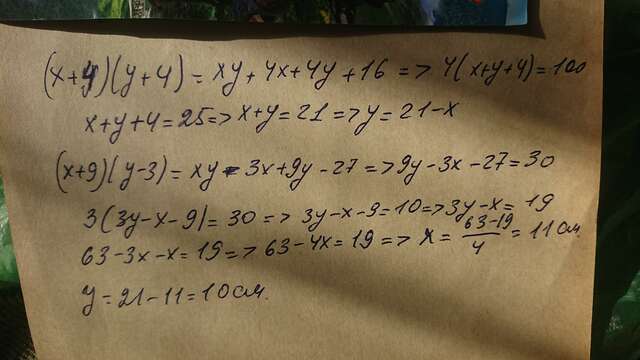 (x+4)(y+4) = xy+4x+4y+16 => 4(x+y+4)=100
x+y+4=25=>x+y=21=>y=21-x
(x+9)(y-3)=xy-3x+9y-27=>9y-3x-27=30
3(3y-x-9)=30=>3y-x-9=10=>3y-x=19
63-3x-x=19=>63-4x=19=>x=\frac{63-19}{4}=11см.
y=21-11=10см.